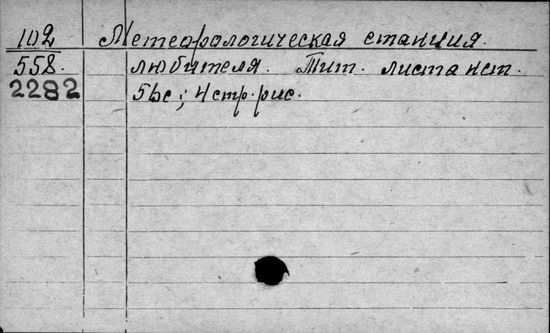 102 Метеорологическая станция.
558. любителя. Тит. листа нет.
2282 56 с; 4 стр. рис.